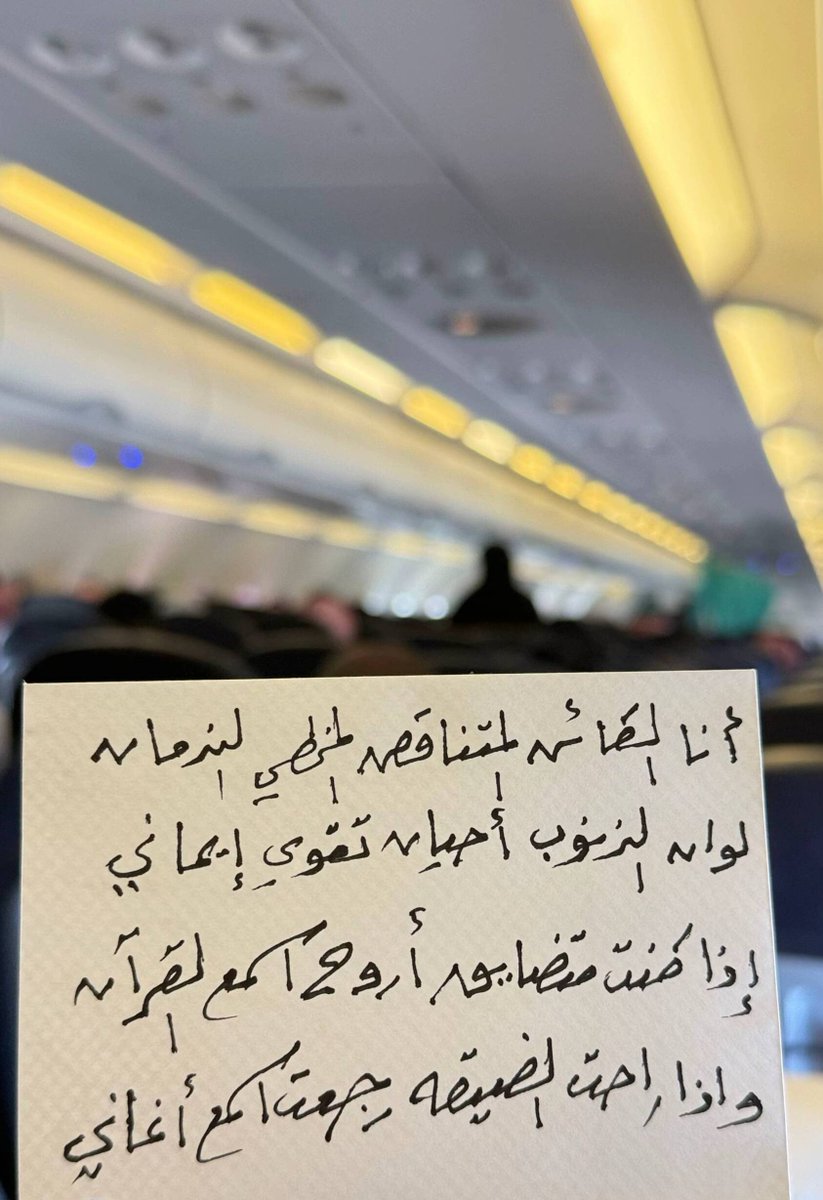 أنا الكائن المتناقض المخطي الندمان
لوان الذنوب أحيان تقوي إيماني
إذا كنت متضايق أروح اسمع القرآن
واذا راحت الضيقه رجعت اسمع أغاني